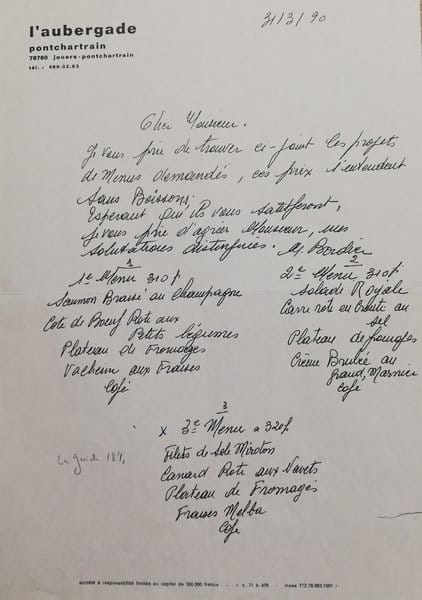 l'aubergade
pontchartrain
78760 jouars-pontchartrain
tél. : 489.02.63
31/3/90
Cher Monsieur.
Je vous prie de trouver ci-joint les projets
de Menus demandés, ces prix s'entendent
Sans Boissons,
Esperant qu'ils vous satisferont,
Je vous prie d'agréer Monsieur, mes
salutations distinguées. M. Bordier
1
1e Menu 310f
Saumon Braisé au Champagne
Cote de Boeuf Rote aux
Petits légumes
Plateau de Fromages
Vacherin aux Fraises
Café
2
2e Menu 310f
Salade Royale
Carre rote en Croute au
sel
Plateau de fromages
Crème Brulée au
Grand Marnier
Café
3
x 3e Menu a 320f
Filets de Sole Miroton
Canard Rote aux Navets
Plateau de Fromages
Fraises Melba
Cafe
société à responsabilité limitée au capital de 300 000 francs - r. c. 71 b 479 - insee 772.78.663.1001